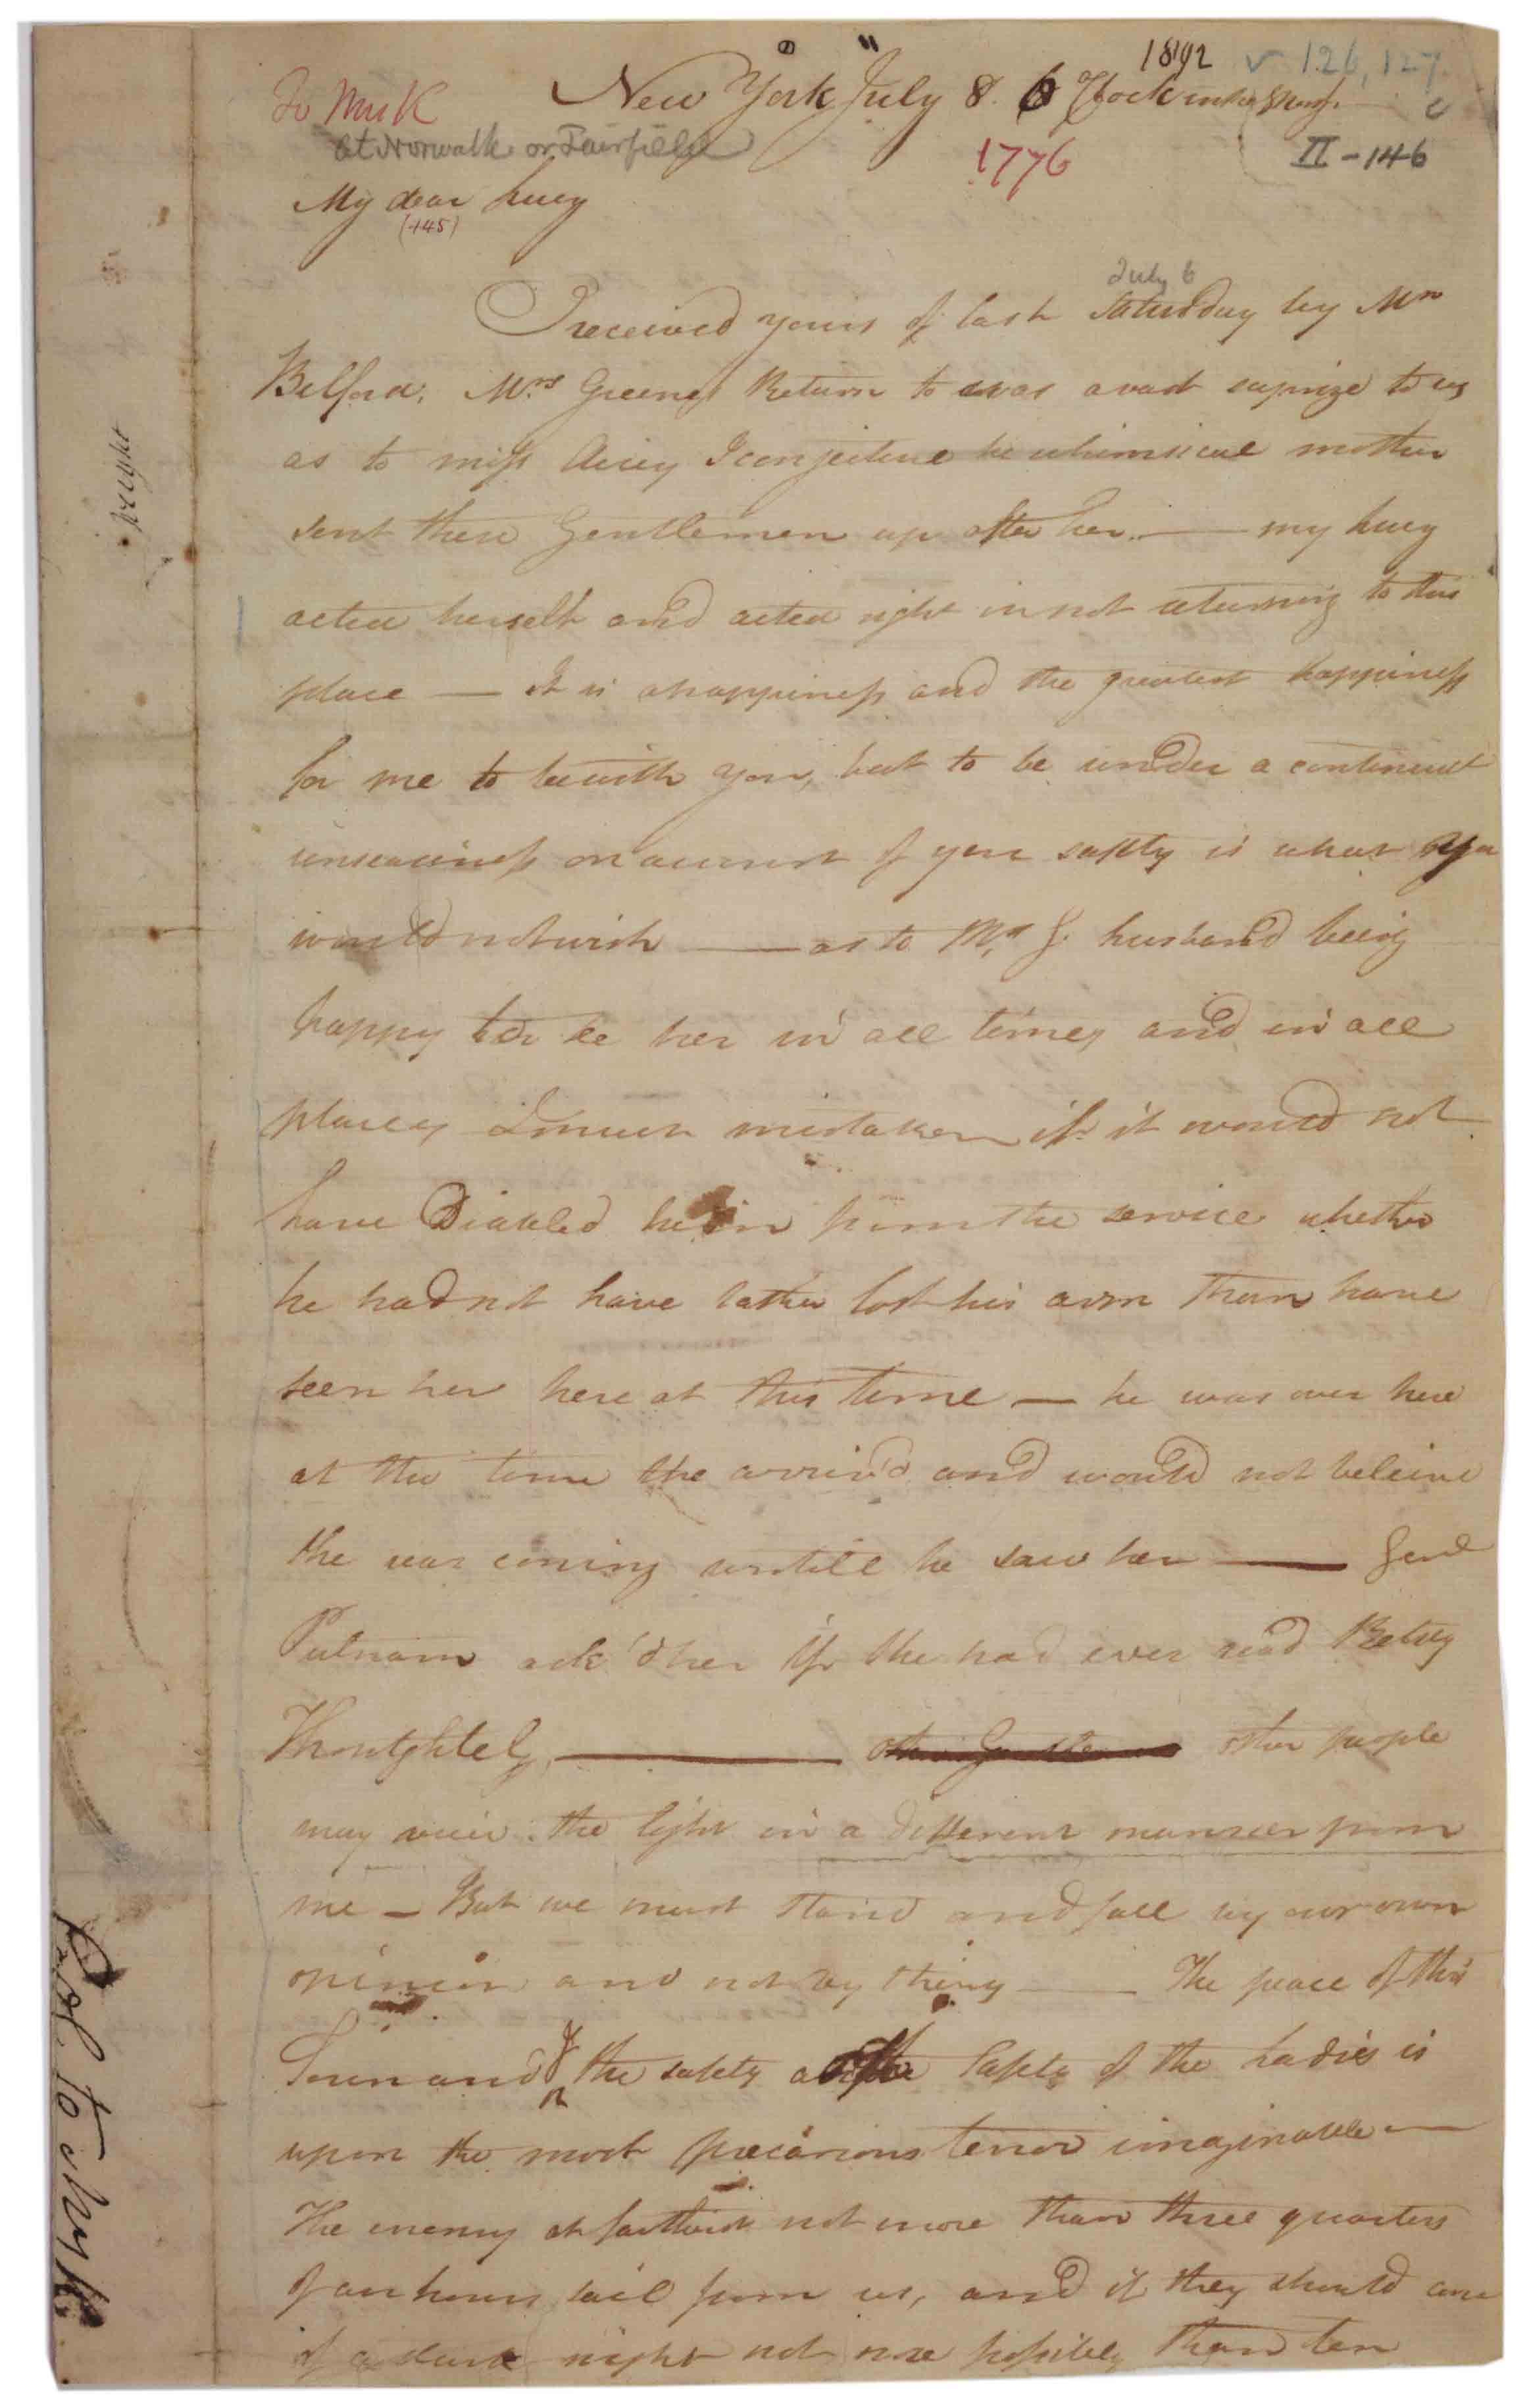 1892 v 126, 127
To Mrs K
New York July 8. 6 oClock in the
At Norwalk or Fairfield
1776
II - 146
My dear Lucy
(145)
July 6
I received yours of last Saturday by Mr
Belford, Mrs Greenes Return to was a vast suprize to us
as to miss Airey I conjecture he whimsical mother
sent these Gentlemen up after her. — my Lucy
acted herself and acted right in not returning to this
place — It is a happiness and the greatest happiness
for me to be with you, but to be under a continual
uneasiness on account of your safty is what you
would not wish — as to Mrs G. husband being
happy to se her in all times and in all
places I much mistaken if it would not
have Disabled him from the service whether
he had not have rather lost his arm than have
seen her here at this time — he was over here
at the time she arriv'd and would not beleive
she was coming untill he saw her — Genl
Putnam ask'd her if she had ever read Betsy
Thoughtely, — other people
may veiw the light in a different manner from
me — But we must stand and fall by our own
opinion and not by theirs — The peace of this
Town and the safety of the Ladies is
upon the most precarious tenor imaginable —
The enemy at farthest not more than three quarters
of an hours sail from us, and if they should come
of a dark night not more possibly than ten
Col. to Mrs K.